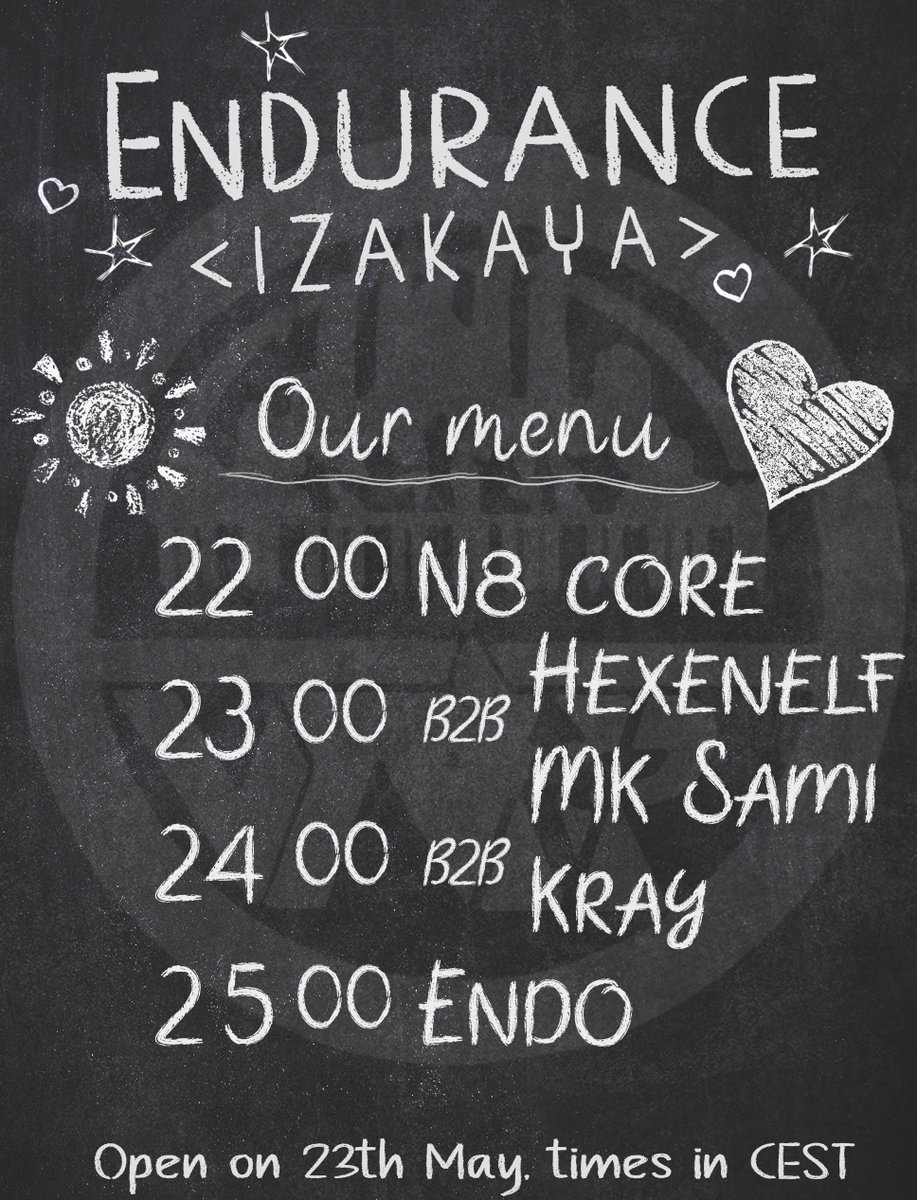 ENDURANCE
<IZAKAYA>
Our menu
22 00 N8 CORE
HEXENELF
23 00 B2B
MK SAMI
24 00 B2B
KRAY
25 00 ENDO
Open on 23th May, times in CEST